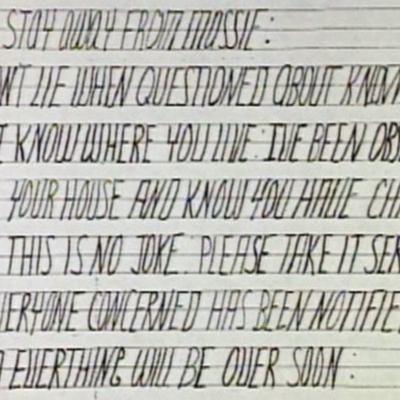 STAY AWAY FROM MASSIE:
N'T LIE WHEN QUESTIONED ABOUT KNOW
I KNOW WHERE YOU LIVE. I'VE BEEN OBS
YOUR HOUSE AND KNOW YOU HAVE CHI
THIS IS NO JOKE. PLEASE TAKE IT SER
VERYONE CONCERNED HAS BEEN NOTIFIE
EVERTHING WILL BE OVER SOON.